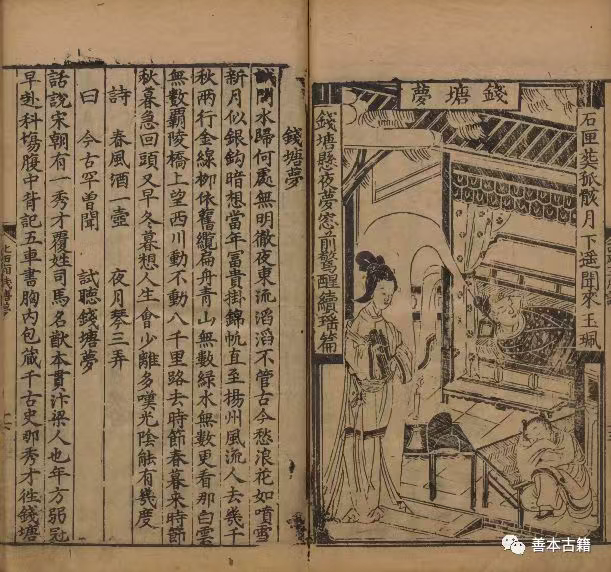 錢塘夢
石匣葬孤骸月下遥聞來玉珮
錢塘懸夜夢窓前驚醒續瑤篇
錢塘夢
試問水歸何處無明徹夜東流滔滔不管古今愁浪花如噴雪
新月似銀鈎暗想當年富貴掛錦帆直至揚州風流人去幾千
秋兩行金線柳依舊纜扁舟青山無數綠水無數更看那白雲
無數霸陵橋上望西川動不動八千里路去時節春暮來時節
秋暮急回頭又早冬暮想人生會少離多嘆光陰能有幾度
詩 春風酒一壺 夜月琴三弄
曰 今古罕曾聞 試聽錢塘夢
話說宋朝有一秀才覆姓司馬名猷本貫汴梁人也年方弱冠
早赴科塲腹中背記五車書胸内包藏千古史那秀才徃錢塘
善本古籍